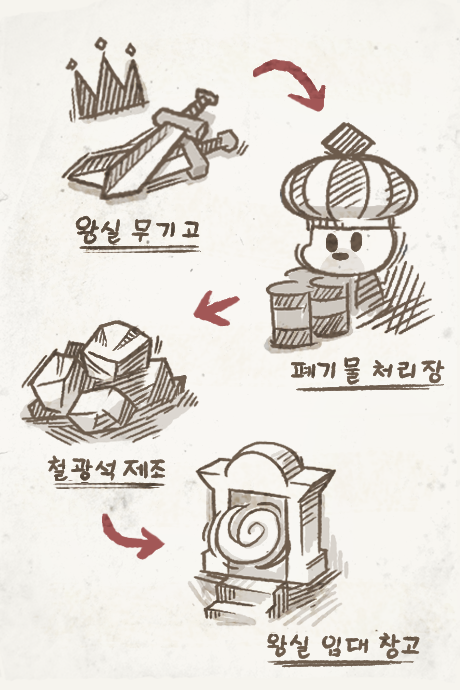 왕실 무기고
폐기물 처리장
철광석 제조
왕실 임대 창고